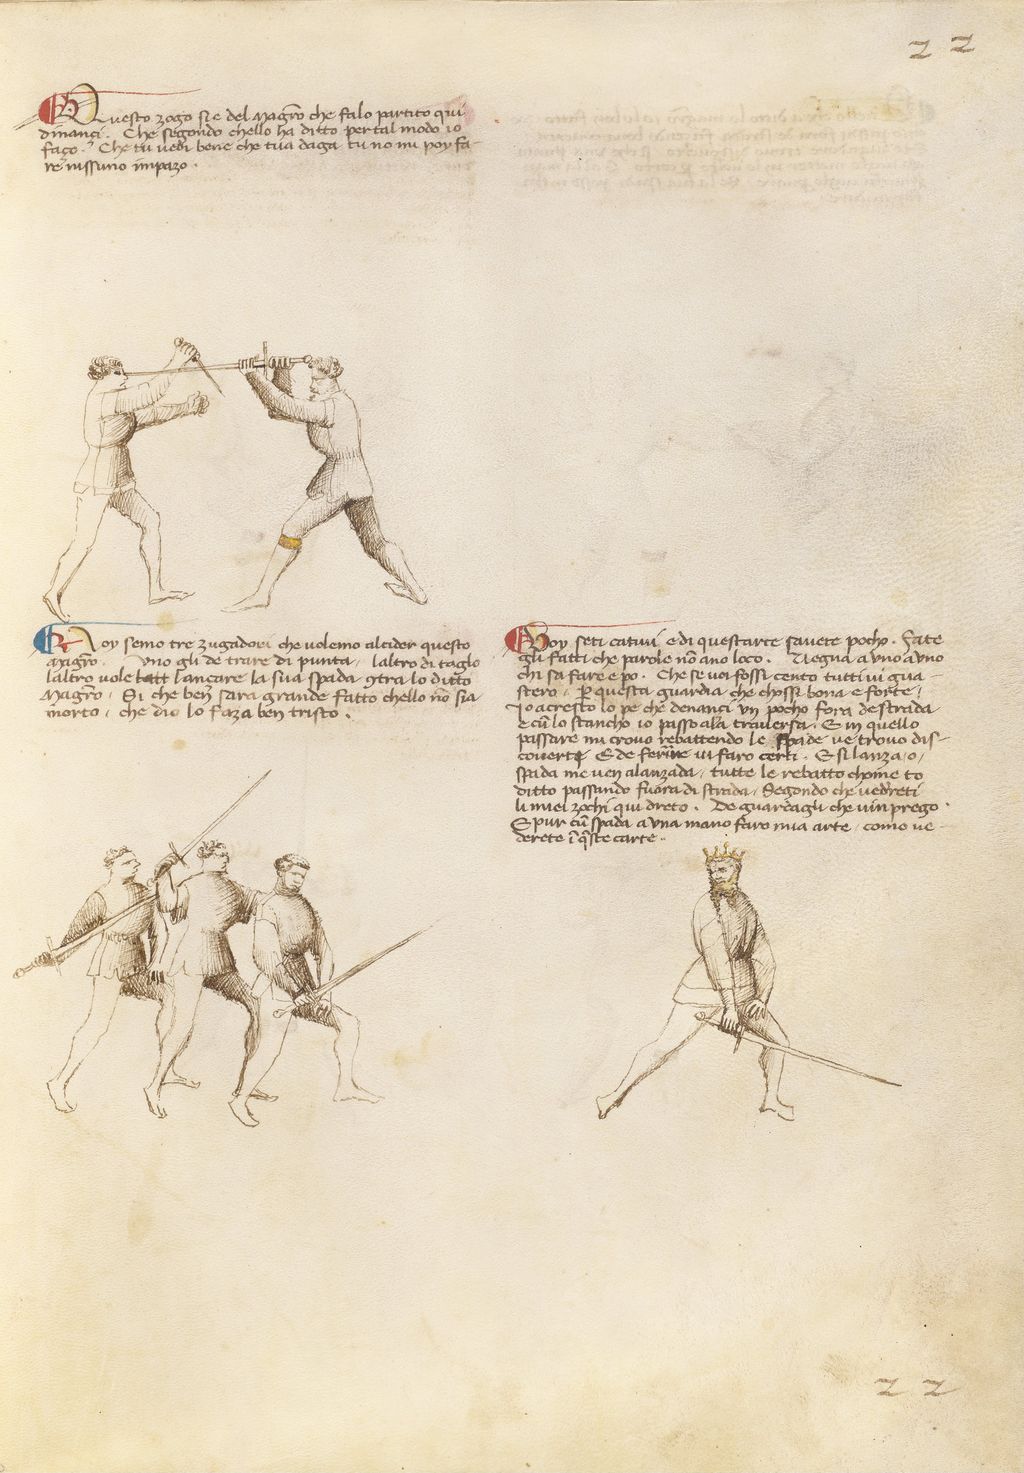 2 2
Questo zogo si e del Magro che fa lo partito qui
dinanci. Che segondo chello ha ditto per tal modo io
faço. Che tu vedi bene che tua daga tu no mi poy fa-
re nissuno impazo.
Noy semo tre zugadori che volemo alcider questo
magro. Uno gli de trare di punta, laltro di taglo
laltro vole lançare la sua spada contra lo ditto
Magro. Si che ben sara grande fatto chello non sia
morto, che dio lo faza ben tristo.
Voy seti cativi e di questarte savete pocho. Fate
gli fatti che parole non ano loco. Vegna a uno a uno
chi sa fare e po. Che se voi fossi cento tutti vi gua-
stero, per questa guardia che chossi bona e forte,
Io acresco lo pe che denanci un pocho fora de strada
e cum lo stancho io passo ala traversa. E in quello
passare mi crovo rebattendo le spade ve trovo dis-
coverti E de ferire vi faro certi. E si lanza, o,
spada me ven alanzada, tutte le rebatto chome to
ditto passando fuora di strada, Segondo che vedreti
li miei zochi qui dreto. De guardagli che vin prego.
E pur cum spada a una mano faro mia arte, como ve-
derete in queste carte.
2 2